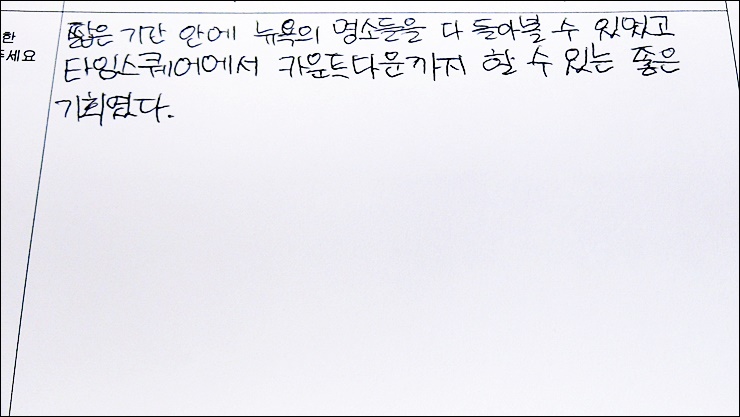 한
주세요
짧은 기간 안에 뉴욕의 명소들을 다 돌아볼 수 있었고
타임스퀘어에서 카운트다운까지 할 수 있는 좋은
기회였다.